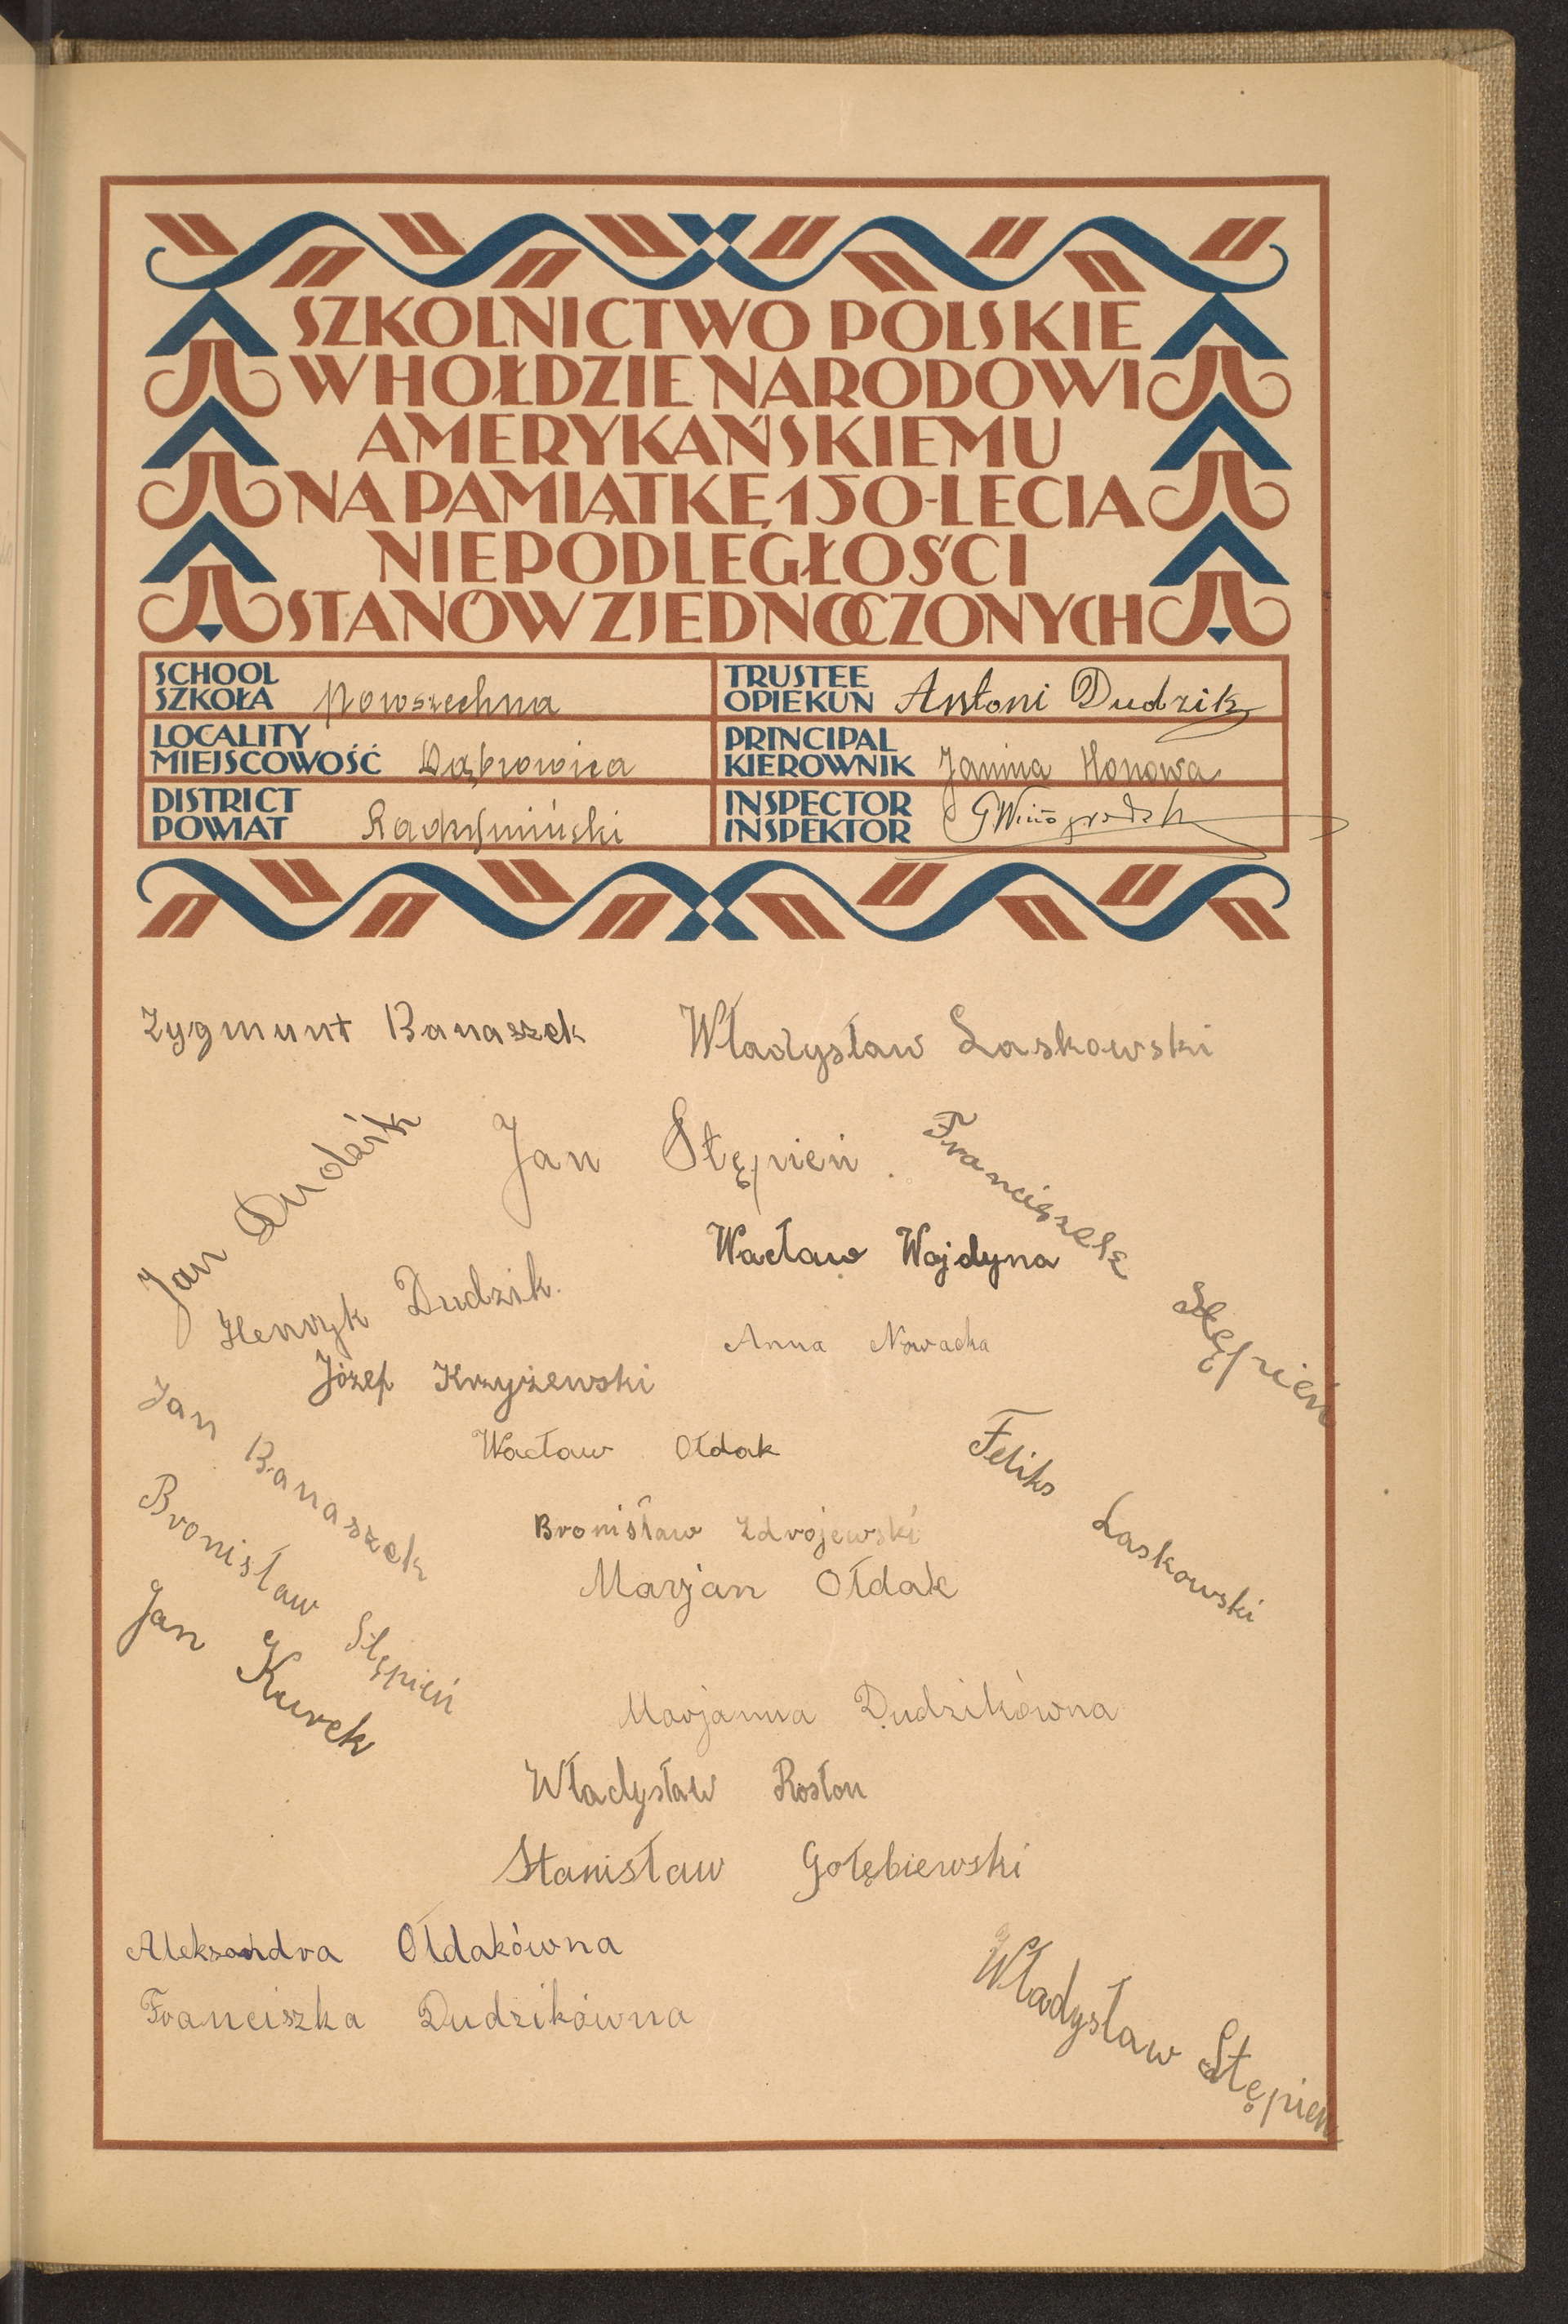 SZKOLNICTWO POLSKIE
W HOŁDZIE NARODOWI
AMERYKAŃSKIEMU
NA PAMIĄTKĘ 150-LECIA
NIEPODLEGŁOŚCI
STANÓW ZJEDNOCZONYCH
SCHOOL
SZKOŁA Powszechna
TRUSTEE
OPIEKUN Antoni Dudzik
LOCALITY
MIEJSCOWOŚĆ Dąbrowica
PRINCIPAL
KIEROWNIK Janina Honowa
DISTRICT
POWIAT Radzymiński
INSPECTOR
INSPEKTOR
Zygmunt Banaszek
Władysław Laskowski
Jan Dudzik
Jan Stępień.
Franciszek Stępień
Wacław Wojdyna
Henryk Dudzik.
Anna Nowacka
Józef Krzyżewski
Jan Banaszek
Wacław Ołdak
Feliks Laskowski
Bronisław Stępień
Bronisław Zdrojewski
Marjan Ołdak
Jan Kurek
Marjanna Dudzikówna
Władysław Rosłon
Stanisław Gołębiewski
Aleksandra Ołdakówna
Władysław Stępień
Franciszka Dudzikówna